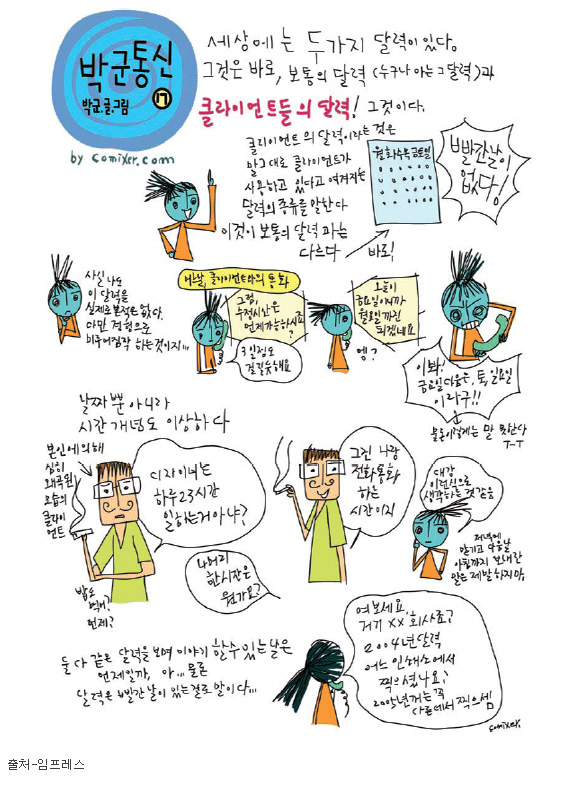 박군통신
박군.글.그림
17
by comixer.com
세상에는 두가지 달력이 있다.
그것은 바로, 보통의 달력 (누구나 아는 그 달력)과
클라이언트들의 달력! 그것이다.
클라이언트의 달력이라는 것은
말 그대로 클라이언트가
사용하고 있다고 여겨지는
달력의 종류를 말한다
이것이 보통의 달력과는
다르다
바로!
월화수목금토일
빨간날이
없다!
사실 나도
이 달력을
실제로 본적은 없다.
다만 경험으로
미루어짐작 하는것이지...
어느날, 클라이언트와의 통화
그럼,
수정시안은
언제가능하시죠
3일정도
걸리겠는데요
오늘이
금요일이니까
월요일까진
되겠네요
엥?
이봐!
금요일다음은, 토, 일요일
이라구!!
물론이렇게는 말 못한다
T-T
날짜뿐아니라
시간개념도 이상하다
본인에의해
심히
왜곡된
모습의
클라이
언트
디자이너는
하루23시간
일하는거아냐?
밥도
먹어?
언제?
나머지
한시간은
뭔가요?
그건 나랑
전화통화
하는
시간이지
대강
이런식으로
생각하는것같음
저녁에
맡기고 다음날
아침까지 보내란
말은 제발 하지마.
둘 다 같은 달력을 보며 이야기 할수있는날은
언제일까, 아...물론
달력은 빨간날이 있는걸로 말이다...
여보세요,
거기 XX 회사죠?
2004년달력
어느 인쇄소에서
찍으셨나요?
2005년꺼는꼭
다른데서 찍으셈
comixer.
출처-임프레스